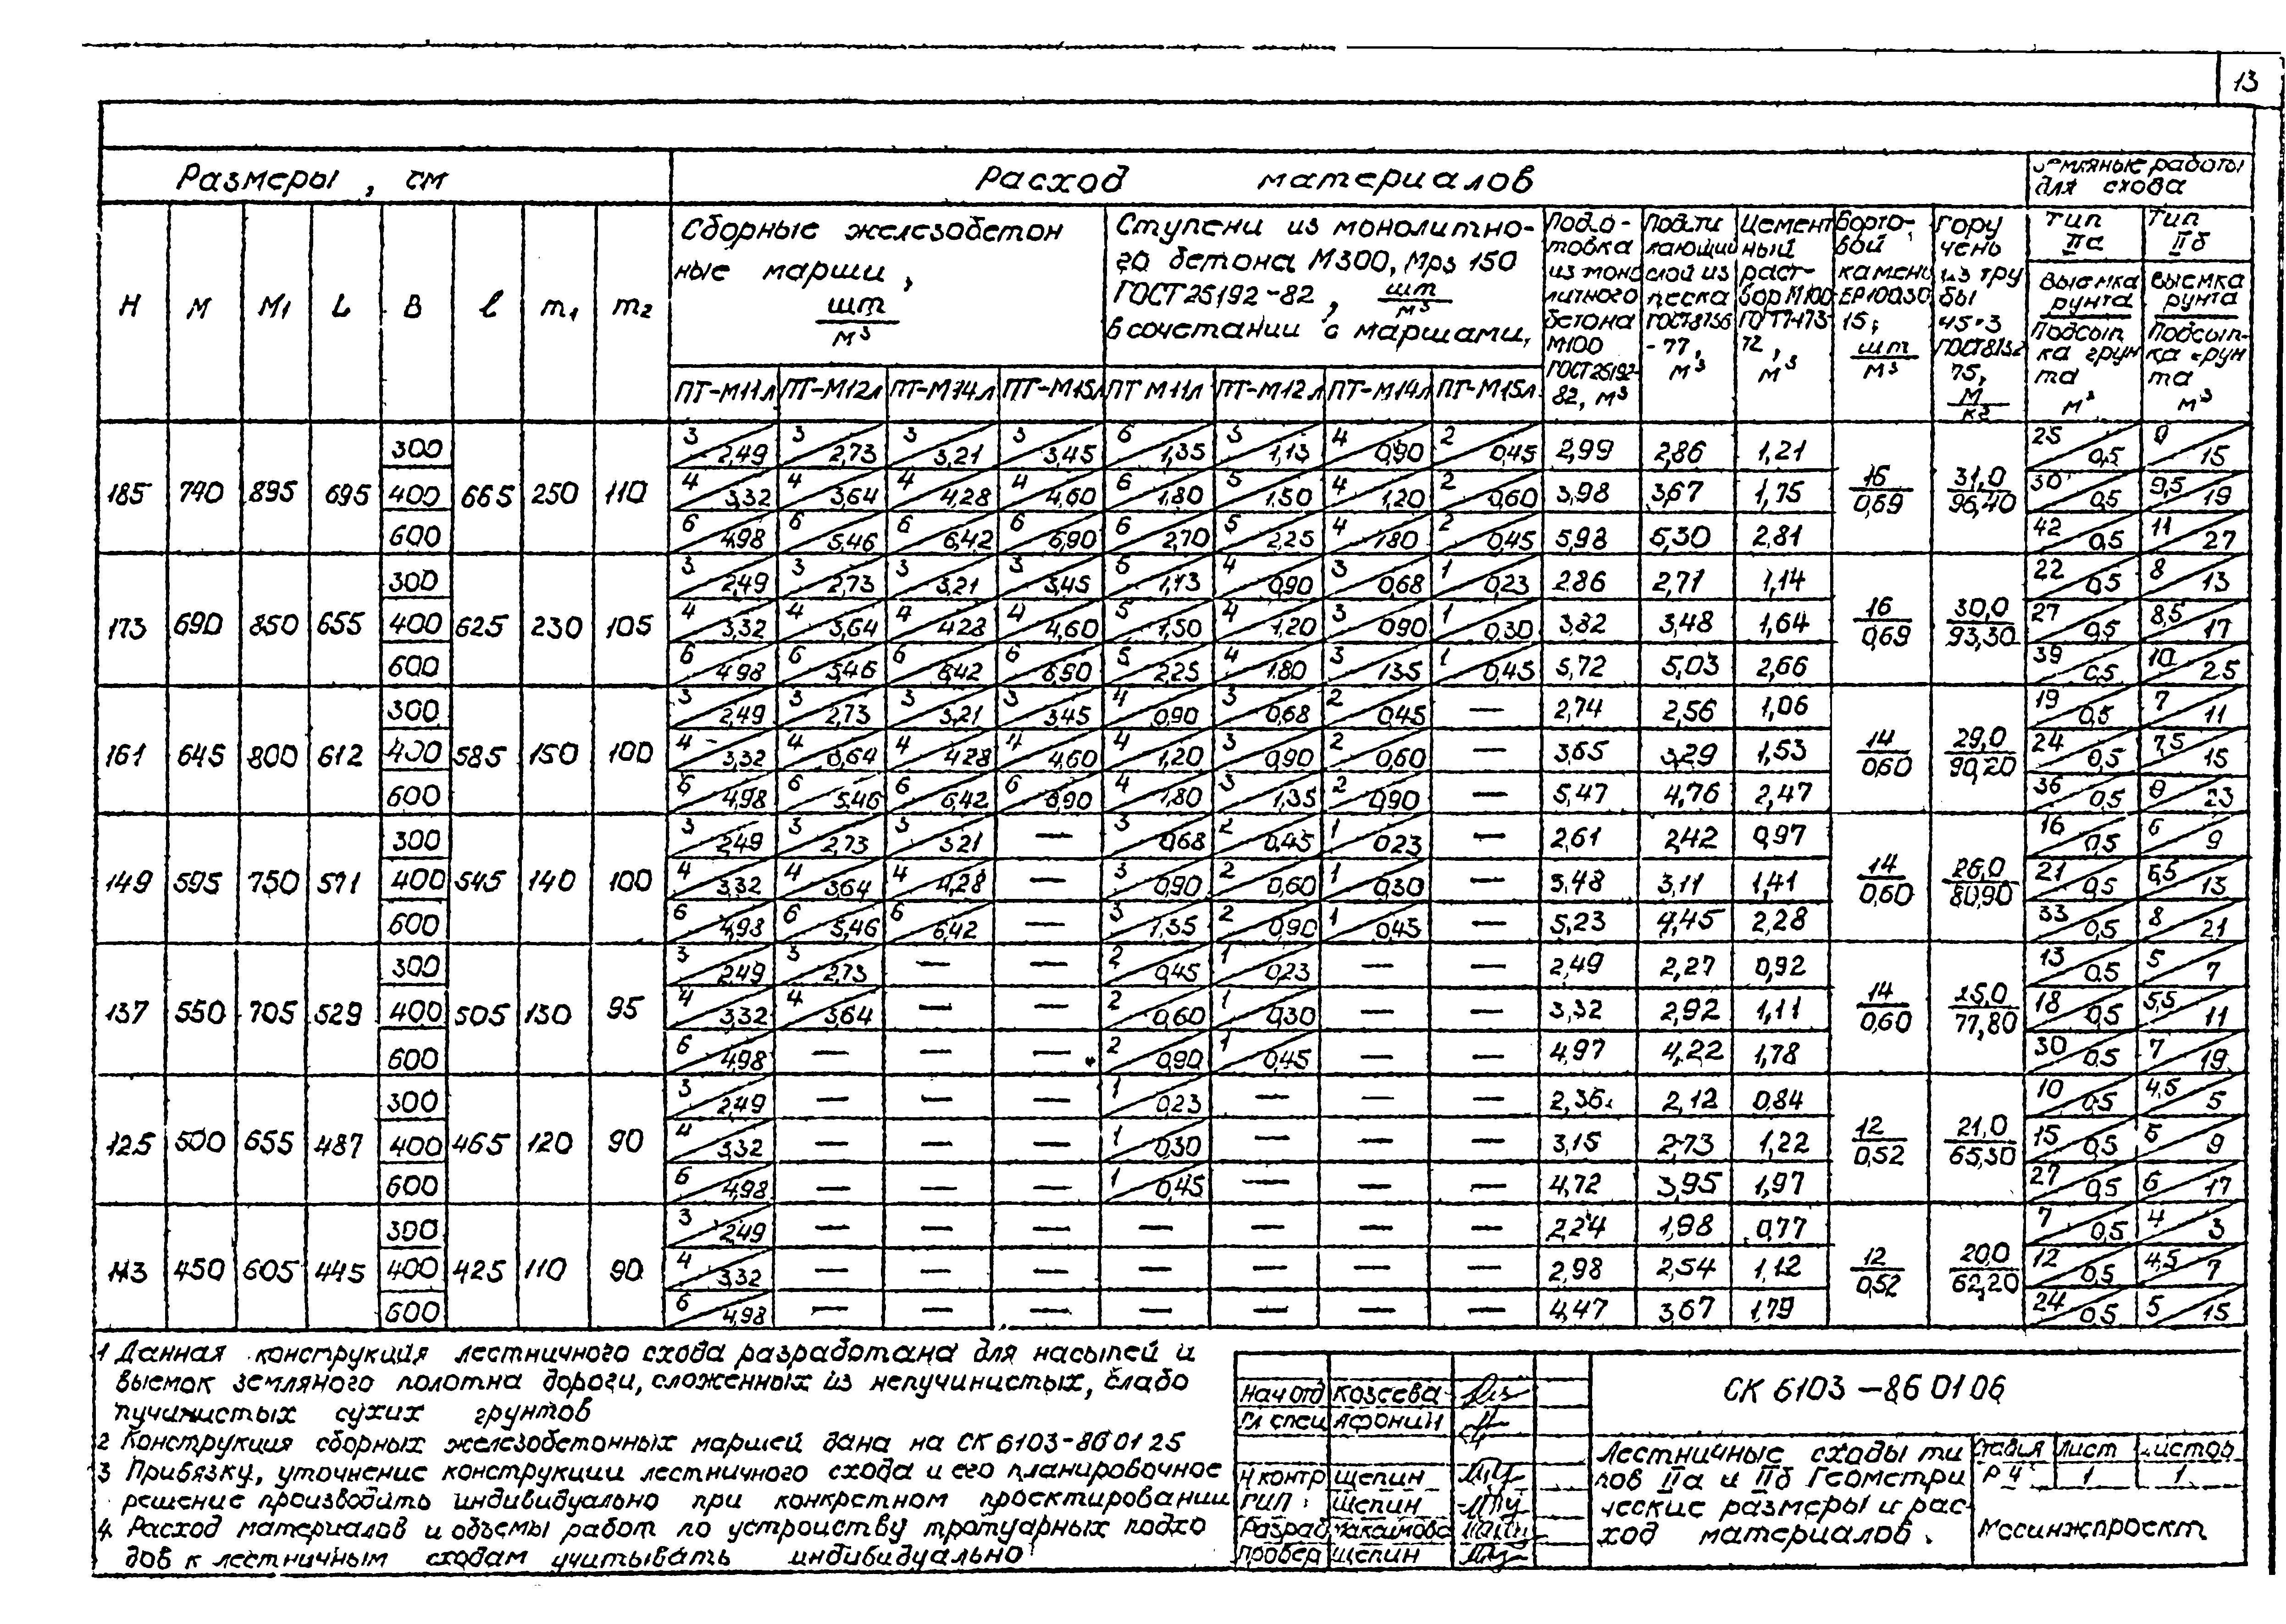 13
Размеры, см
Расход материалов
Земляные работы
для схода
H M M1 L B l m1 m2
Сборные железобетон
ные марши,
шт
м3
Ступени из монолитно-
го бетона М300, Мрз 150
ГОСТ 25192-82, шт
м3
в сочетании с маршами,
ПТ-М11л ПТ-М12л ПТ-М14л ПТ-М15л ПТ М11л ПТ-М12л ПТ-М14л ПТ-М15л
Подго-
товка
из моно
литного
бетона
М100
ГОСТ 25192-
82, м3
Подсти
лающий
слой из
песка
ГОСТ8736
-77,
м3
Цемент
ный
раст-
вор М100
72,
м3
Борто-
вой
камень
15,
шт
м3
Пору
чень
из тру
бы
45·3
75,
м
кг
Тип
IIа
Выемка
рунта
Подсып
ка грун
та
м3
Тип
IIб
Выемка
рунта
Подсып-
ка грун
та
м3
185 740 895 695 665 250 110 16/0,69 31,0/96,40
300 3/2,49 3/2,73 3/3,21 3/3,45 6/1,35 5/1,13 4/0,90 2/0,45 2,99 2,86 1,21 25/0,5 9/15
400 4/3,32 4/3,64 4/4,28 4/4,60 6/1,80 5/1,50 4/1,20 2/0,60 3,98 3,67 1,75 30/0,5 9,5/19
600 6/4,98 6/5,46 6/6,42 6/6,90 6/2,70 5/2,25 4/1,80 2/0,45 5,98 5,30 2,81 42/0,5 11/27
173 690 850 655 625 230 105 16/0,69 30,0/93,30
300 3/2,49 3/2,73 3/3,21 3/3,45 5/1,13 4/0,90 3/0,68 1/0,23 2,86 2,71 1,14 22/0,5 8/13
400 4/3,32 4/3,64 4/4,28 4/4,60 5/1,50 4/1,20 3/0,90 1/0,30 3,82 3,48 1,64 27/0,5 8,5/17
600 6/4,98 6/5,46 6/6,42 6/6,90 5/2,25 4/1,80 3/1,35 1/0,45 5,72 5,03 2,66 39/0,5 10/25
161 645 800 612 585 150 100 14/0,60 29,0/90,20
300 3/2,49 3/2,73 3/3,21 3/3,45 4/0,90 3/0,68 2/0,45 — 2,74 2,56 1,06 19/0,5 7/11
400 4/3,32 4/3,64 4/4,28 4/4,60 4/1,20 3/0,90 2/0,60 — 3,65 3,29 1,53 24/0,5 7,5/15
600 6/4,98 6/5,46 6/6,42 6/6,90 4/1,80 3/1,35 2/0,90 — 5,47 4,76 2,47 36/0,5 9/23
149 595 750 571 545 140 100 14/0,60 26,0/80,90
300 3/2,49 3/2,73 3/3,21 — 3/0,68 2/0,45 1/0,23 — 2,61 2,42 0,97 16/0,5 6/9
400 4/3,32 4/3,64 4/4,28 — 3/0,90 2/0,60 1/0,30 — 3,48 3,11 1,41 21/0,5 6,5/13
600 6/4,98 6/5,46 6/6,42 — 3/1,35 2/0,90 1/0,45 — 5,23 4,45 2,28 33/0,5 8/21
137 550 705 529 505 130 95 14/0,60 25,0/77,80
300 3/2,49 3/2,73 — — 2/0,45 1/0,23 — — 2,49 2,27 0,92 13/0,5 5/7
400 4/3,32 4/3,64 — — 2/0,60 1/0,30 — — 3,32 2,92 1,11 18/0,5 5,5/11
600 6/4,98 — — — 2/0,90 1/0,45 — — 4,97 4,22 1,78 30/0,5 7/19
125 500 655 487 465 120 90 12/0,52 21,0/65,30
300 3/2,49 — — — 1/0,23 — — — 2,36 2,12 0,84 10/0,5 4,5/5
400 4/3,32 — — — 1/0,30 — — — 3,15 2,73 1,22 15/0,5 5/9
600 6/4,98 — — — 1/0,45 — — — 4,72 3,95 1,97 27/0,5 6/17
113 450 605 445 425 110 90 12/0,52 20,0/62,20
300 3/2,49 — — — — — — — 2,24 1,98 0,77 7/0,5 4/3
400 4/3,32 — — — — — — — 2,98 2,54 1,12 12/0,5 4,5/7
600 6/4,98 — — — — — — — 4,47 3,67 1,79 24/0,5 5/15
1 Данная конструкция лестничного схода разработана для насыпей и
выемок земляного полотна дороги, сложенных из непучинистых, слабо
пучинистых сухих грунтов
2 Конструкция сборных железобетонных маршей дана на СК 6103-86 01 25
3 Привязку, уточнение конструкции лестничного схода и его планировочное
решение производить индивидуально при конкретном проектировании
4 Расход материалов и объемы работ по устроиству тротуарных подхо
дов к лестничным сходам учитывать индивидуально
Нач отд Козеева
Гл спец Афонин
Н контр Щепин
ГИП Щепин
Разраб Максимова
Провер Щепин
СК 6103-86 01 06
Лестничные сходы ти
пов IIа и IIб Геометри
ческие размеры и рас-
ход материалов.
Стадия Лист Листов
Р Ч 1 1
Мосинжпроект